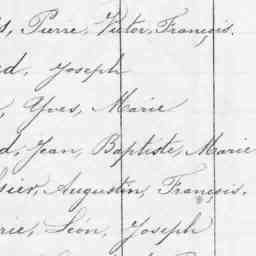 s, Pierre, Victor, François.
d, Joseph
, Yves, Marie
d, Jean, Baptiste, Marie
sier, Augustin, François.
rie, Léon, Joseph